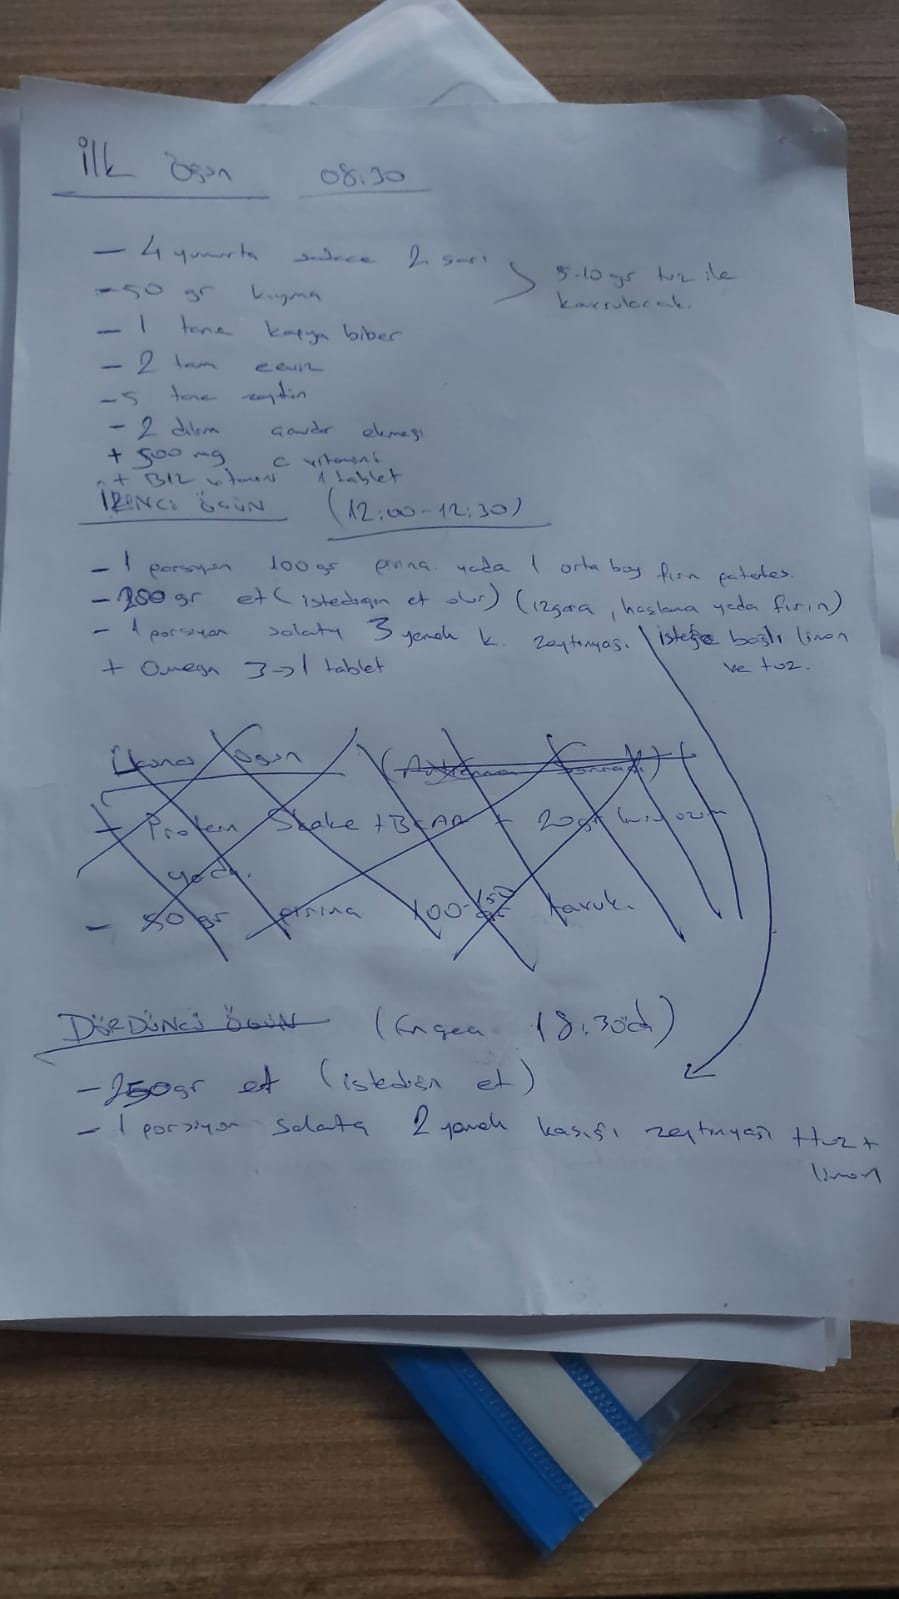 ilk öğün 08:30
- 4 yumurta sadece 2 sarı
5-10 gr tuz ile
- 50 gr kıyma
kavrulacak.
- 1 tane kapya biber
- 2 tam ceviz
- 5 tane zeytin
- 2 dilim çavdar ekmeği
+ 500 mg C vitamini
+ B12 vitamini 1 tablet
İKİNCİ ÖĞÜN (12:00-12:30)
- 1 porsiyon 100 gr pirinç yada 1 orta boy fırın patates.
- 200 gr et (istediğin et olur) (ızgara, haşlama yada fırın)
- 1 porsiyon salata 3 yemek k. zeytinyağı. isteğe bağlı limon
ve tuz.
+ Omega 3 → 1 tablet
Üçüncü öğün (Antrenman sonrası)
- Protein Shake + BCAA + 20gr kuru üzüm
yada
- 50 gr pirinç 100-150 gr tavuk.
DÖRDÜNCÜ ÖĞÜN (En geç 18:30da)
- 250gr et (istediğin et)
- 1 porsiyon salata 2 yemek kaşığı zeytinyağı + tuz +
limon